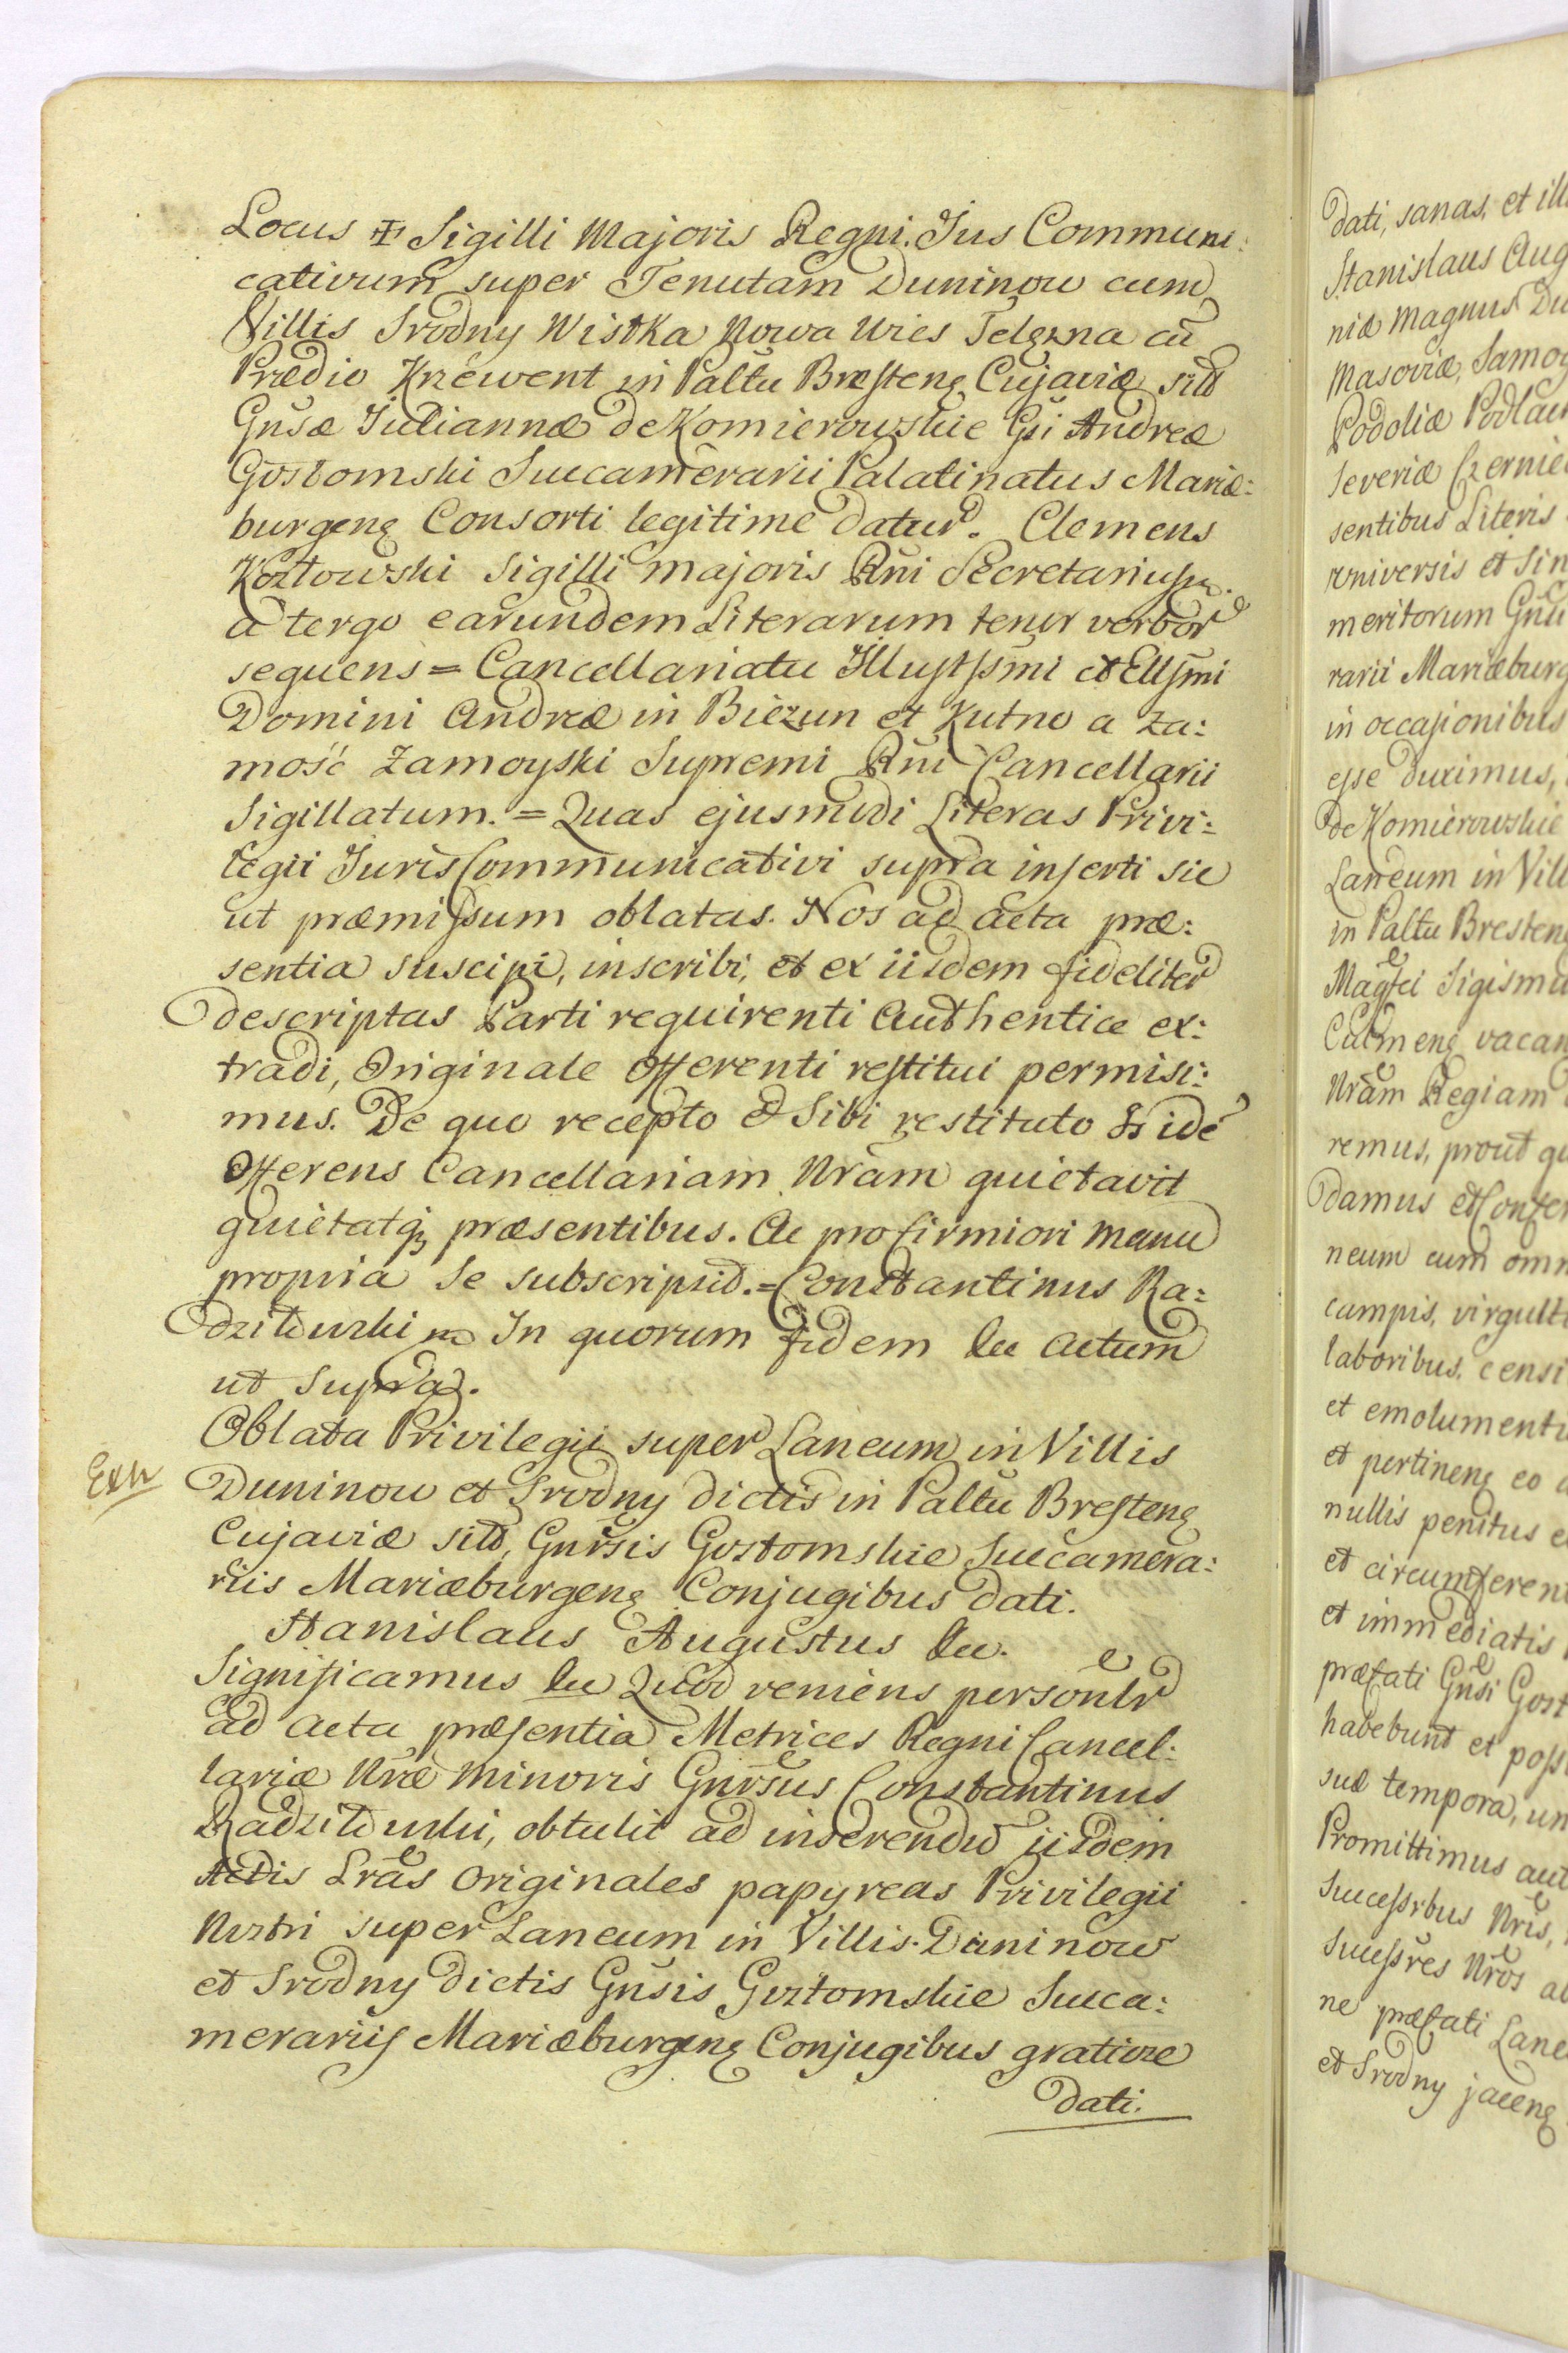 Locus ✠ Sigilli Majoris Regni. Jus Communi:
cativum super Tenutam Duninow cum
Villis Srodny Wistka Nowa Wies Telązna cū
Prædio Krzewent in Paltu Bresteng Cujaviæ sitt
Gnsæ Juliannæ de Komierowskie Gsi Andreæ
Gostomski Succamerarii Palatinatus Mariæ:
burgeng Consorti legitime datur. Clemens
Kozłowski Sigilli majoris Rni Secretarius
a tergo earundem Literarum tenor verbor
sequens = Cancellariatu Illustssmi et Ellsmi
Domini Andreæ in Biezun et Kutno a Za:
mość Zamoyski Supremi Rni Cancellarii
Sigillatum. = Quas ejusmodi Literas Privi:
legii Juris Communicativi supra inserti sic
ut præmissum oblatas. Nos ad acta præ:
sentia suscipi, inscribi, et ex iisdem fideliter
descriptas Parti requirenti Authentice ex:
tradi, Originale Offerenti restitui permisi:
mus. De quo recepto et Sibi restituto idē
Offerens Cancellariam Nram quietavit
quietatq præsentibus. Ac pro firmiori manu
propria se subscripsit. = Constantinus Ra:
dzitowski In quorum fidem &c Actum
ut Supra.
Oblata Privilegii super Laneum in Villis
Exh
Duninow et Srodny dictis in Paltu Bresteng
Cujaviæ sitt, Gnrsis Gostomskie Succamera:
riis Mariæburgeng Conjugibus dati.
Stanislaus Augustus &c.
Significamus &c Quod veniens personlr
ad Acta præsentia Metrices Regni Cancel:
lariæ Nræ minoris Gnrsus Constantinus
Radzitowski, obtulit ad inserendū iisdem
Actis Lras Originales papyreas Privilegii
Nostri super Laneum in Villis Duninow
et Srodny dictis Gnsis Gostomskie Succa:
merariis Mariæburgeng Conjugibus gratiose
dati.
dati, sanas, et ill
Stanislaus Aug
niæ Magnus Du
Masoviæ, Samog
Podoliæ Podlach
Severiæ Czernie
sentibus Literis
universis et sin
meritorum Gnu
rarii Mariæburg
in occasionibus
esse duximus,
de Komierowskie
Laneum in Vill
in Paltu Bresten
Magfci Sigismu
Culmeng vacan
Nram Regiam
remus, prout qu
Damus et Confer
neum cum omn
campis, virgult
laboribus, censi
et emolument
et pertineng eo
nullis penitus e
et circumferen
et immediatis
præfati Gnsi Gost
habebunt et poss
suæ tempora, un
Promittimus aut
Successrbus Nris,
Successres Nros a
ne præfati Lane
et Srodny jaceng